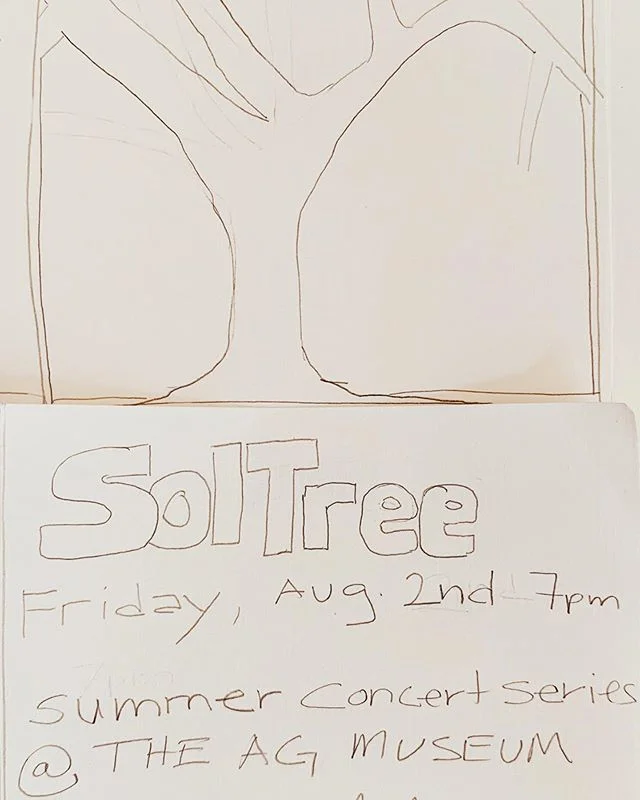 SolTree
Friday, Aug. 2nd 7pm
summer concert series
@ THE AG MUSEUM